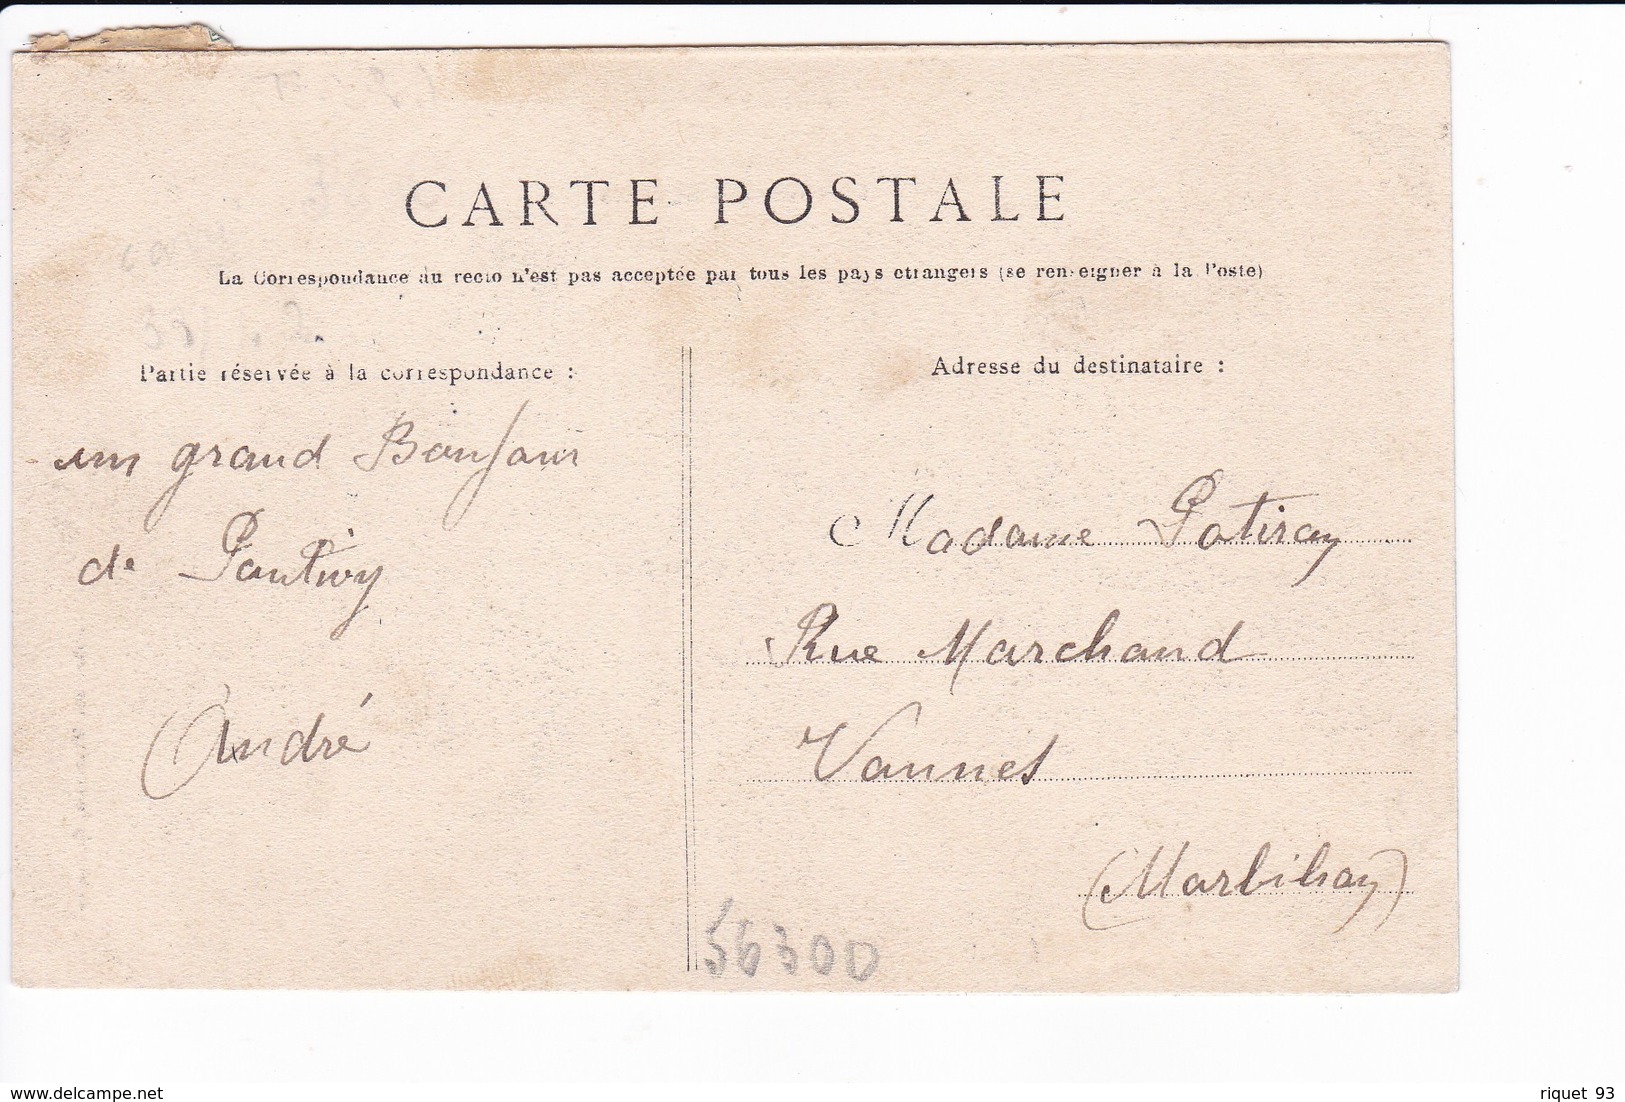 CARTE POSTALE
La Correspondance au recto n'est pas acceptée par tous les pays etrangers (se renseigner à la Poste)
Partie réservée à la correspondance :
Adresse du destinataire :
un grand Bonjour
de Pontivy
André
Madame
Rue Marchand
Vannes
(Morbihan)
56300
delcampe.net
riquet 93